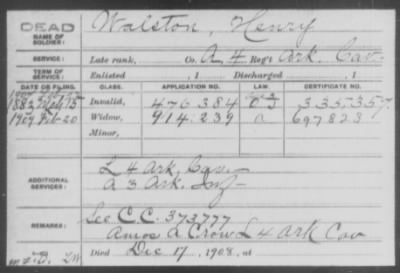 DEAD
NAME OF SOLDIER: Walston, Henry
SERVICE: Late rank, Co. A, 4 Reg't Ark. Cav.
TERM OF SERVICE: Enlisted , 1 Discharged , 1
DATE OF FILING. CLASS. APPLICATION NO. LAW. CERTIFICATE NO.
1883 15 Invalid, 476.384 335.357
1909 Feb-20 Widow, 914.239 697823
Minor,
L 4 Ark. Cav.
ADDITIONAL SERVICES: A 3 Ark. Inf
REMARKS: See C.C. 373777
Amos A Crow L 4 Ark Cav
Died Dec 17, 1908, at